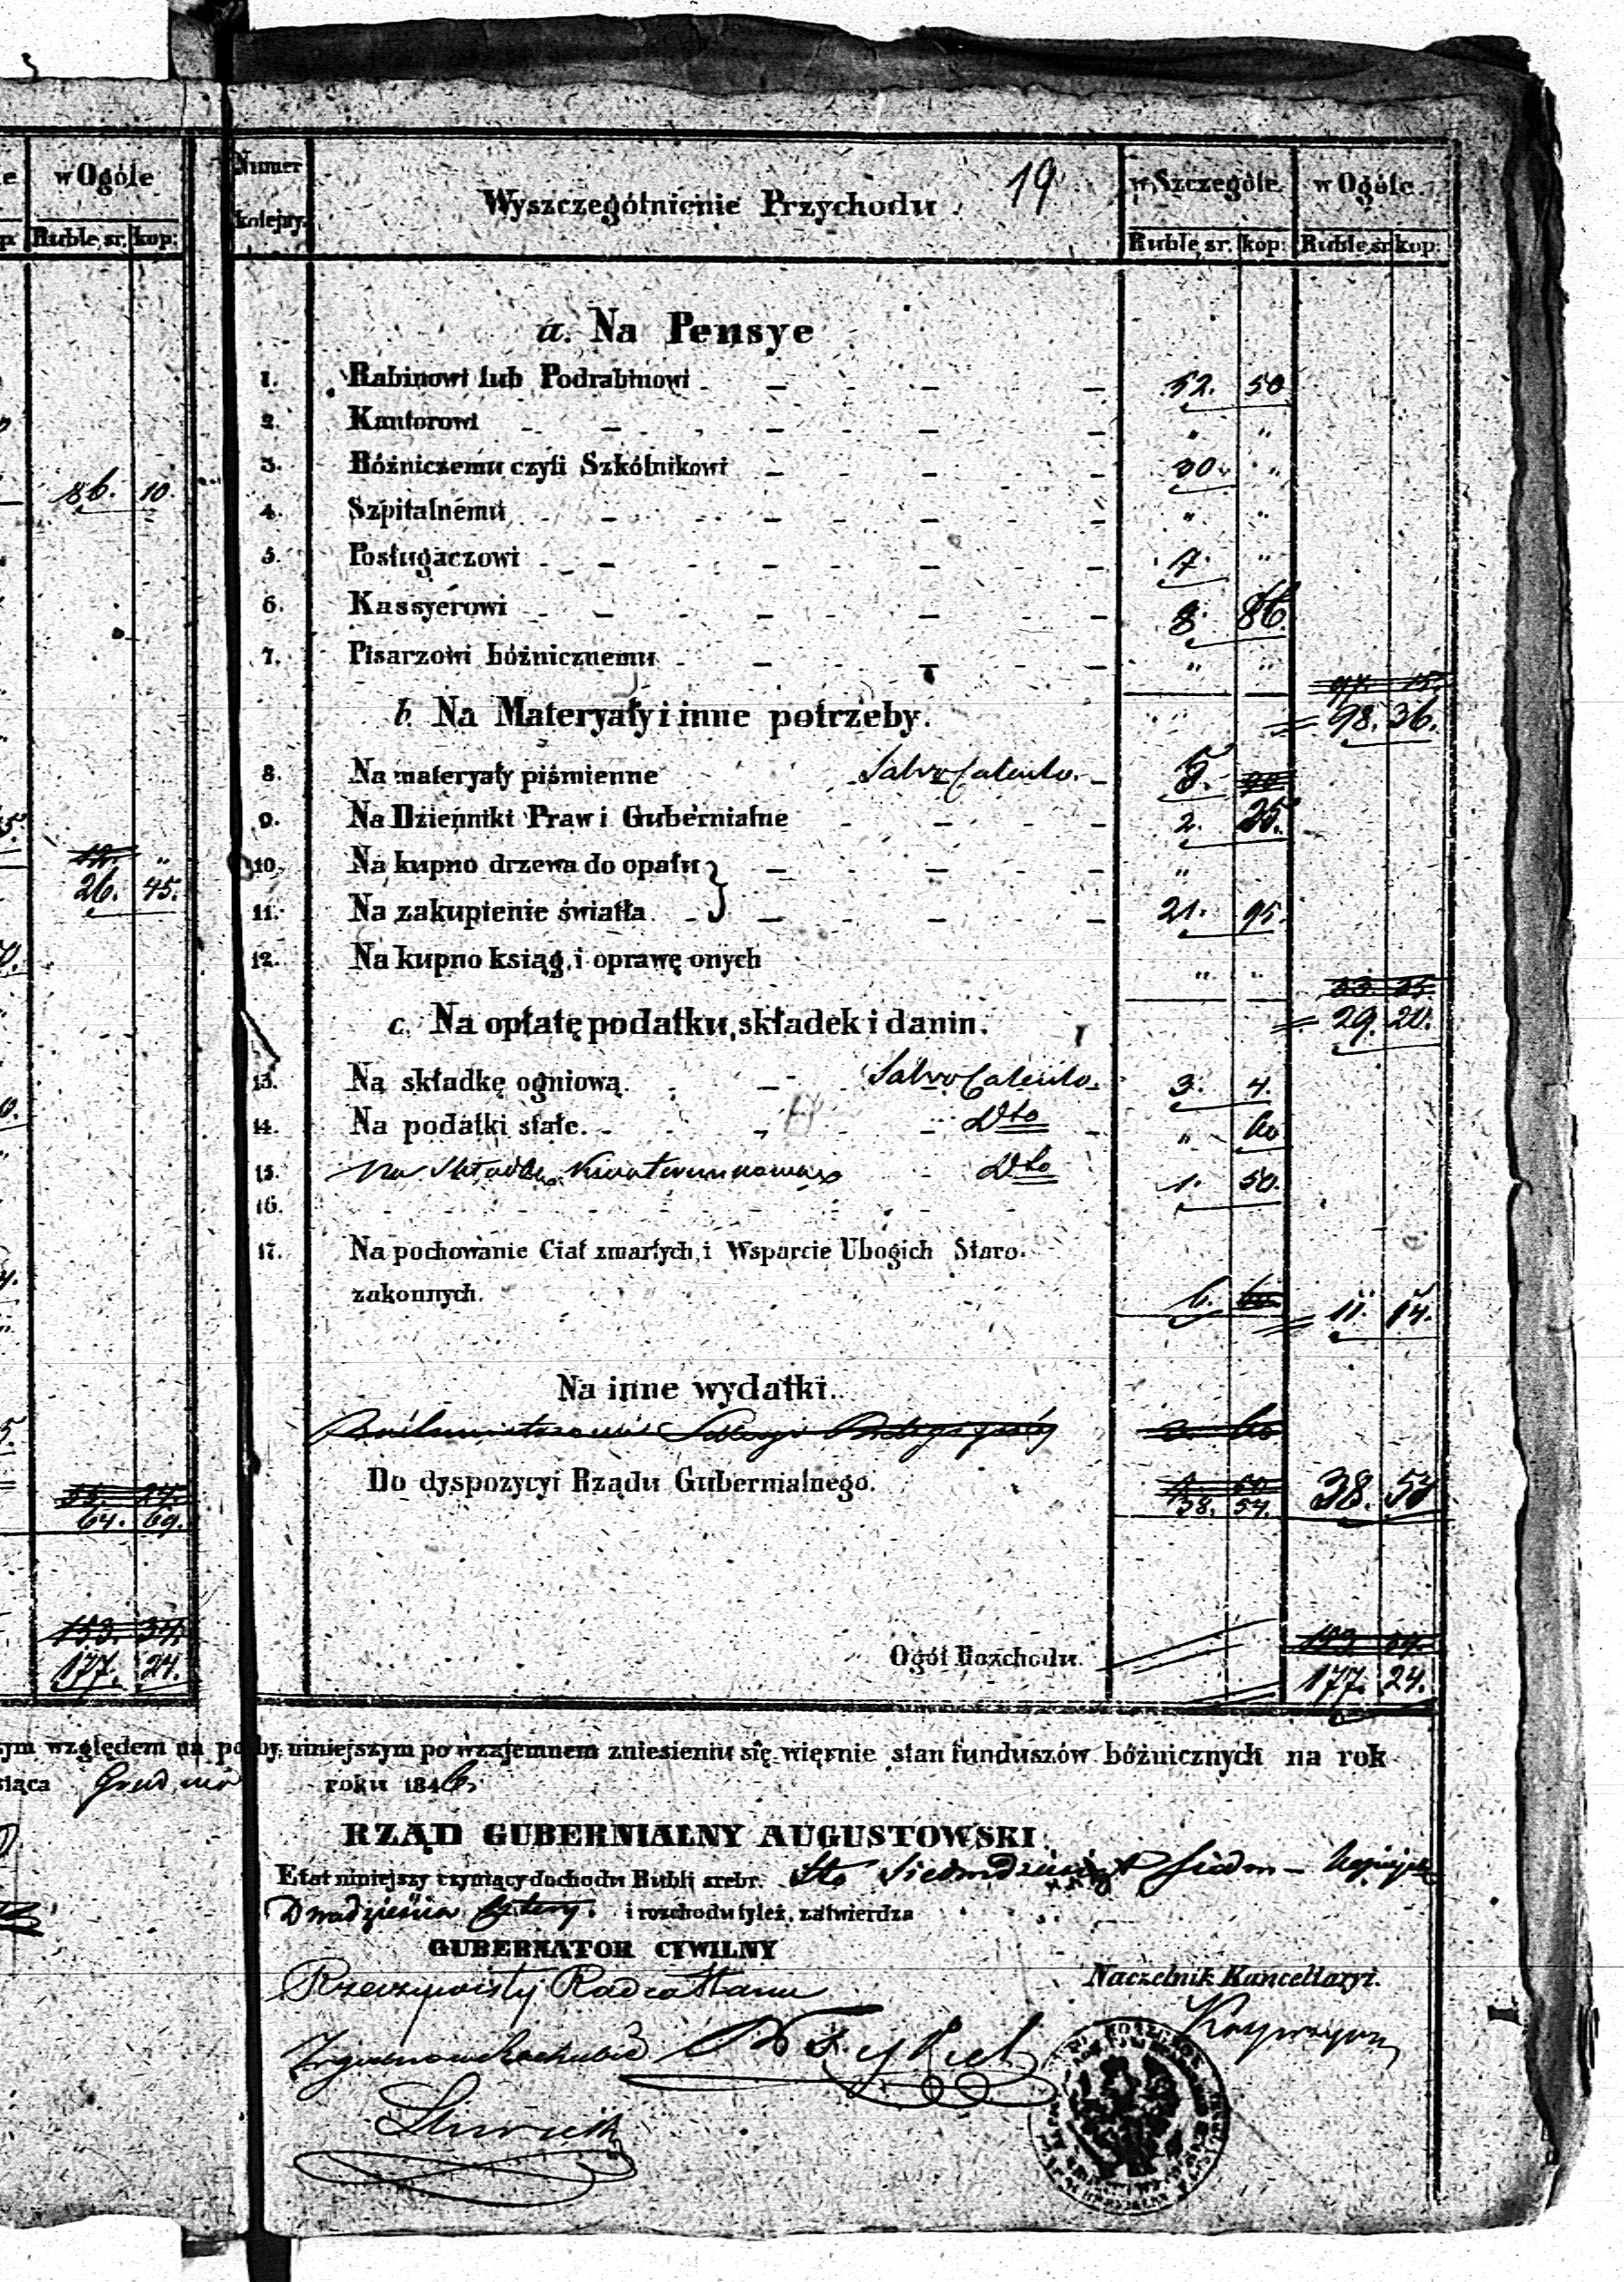 w Ogóle
Ruble sr. kop:
86. 10.
12. "
26. 45.
55. 24.
64. 69.
153. 34.
177. 24.
Numer kolejny.
Wyszczególnienie Przychodu.
19
w Szczególe. w Ogóle.
Ruble sr. kop: Ruble sr. kop:
a. Na Pensye
1. Rabinowi lub Podrabinowi 52. 50
2. Kantorowi " "
3. Bóźniczemu czyli Szkólnikowi 30. "
4. Szpitalnému " "
5. Posługaczowi 7. "
6. Kassyerowi 8. 86.
7. Pisarzowi bóźnicznemu " "
97. 15.
98. 36.
b. Na Materyały i inne potrzeby.
8. Na materyały piśmienne Salvo Calculo. 5.
9. Na Dzienniki Praw i Gubernialne 2. 25.
10. Na kupno drzewa do opału "
11. Na zakupienie światła 21. 95.
12. Na kupno ksiąg, i oprawę onych " "
29. 20.
c. Na opłatę podatku, składek i danin.
13. Na składkę ogniową. Salvo Calculo. 3. 4.
14. Na podatki stałe. Dto " 60
15. Na Składkę Kwaterunkową Dto 1. 50.
16.
17. Na pochowanie Ciał zmarłych, i Wsparcie Ubogich Staro-
zakonnych. 6. 11. 14.
Na inne wydatki.
Do dyspozycyi Rządu Gubernialnego.
38. 54. 38. 54
Ogół Rozchodu.
177. 24.
względem na po by, niniejszym po wzajemnem zniesieniu się wiernie stan funduszów bóźnicznych na rok
siąca Grudnia roku 1846.
RZĄD GUBERNIALNY AUGUSTOWSKI.
Etat niniejszy czyniący dochodu Rubli srebr. Sto Siedmdziesiąt siedm – kopiejek
Dwadzieścia cztery. i rozchodu tyleż, zatwierdza
GUBERNATOR CYWILNY
Rzeczywisty Radca Stanu
Naczelnik Kancellaryi.